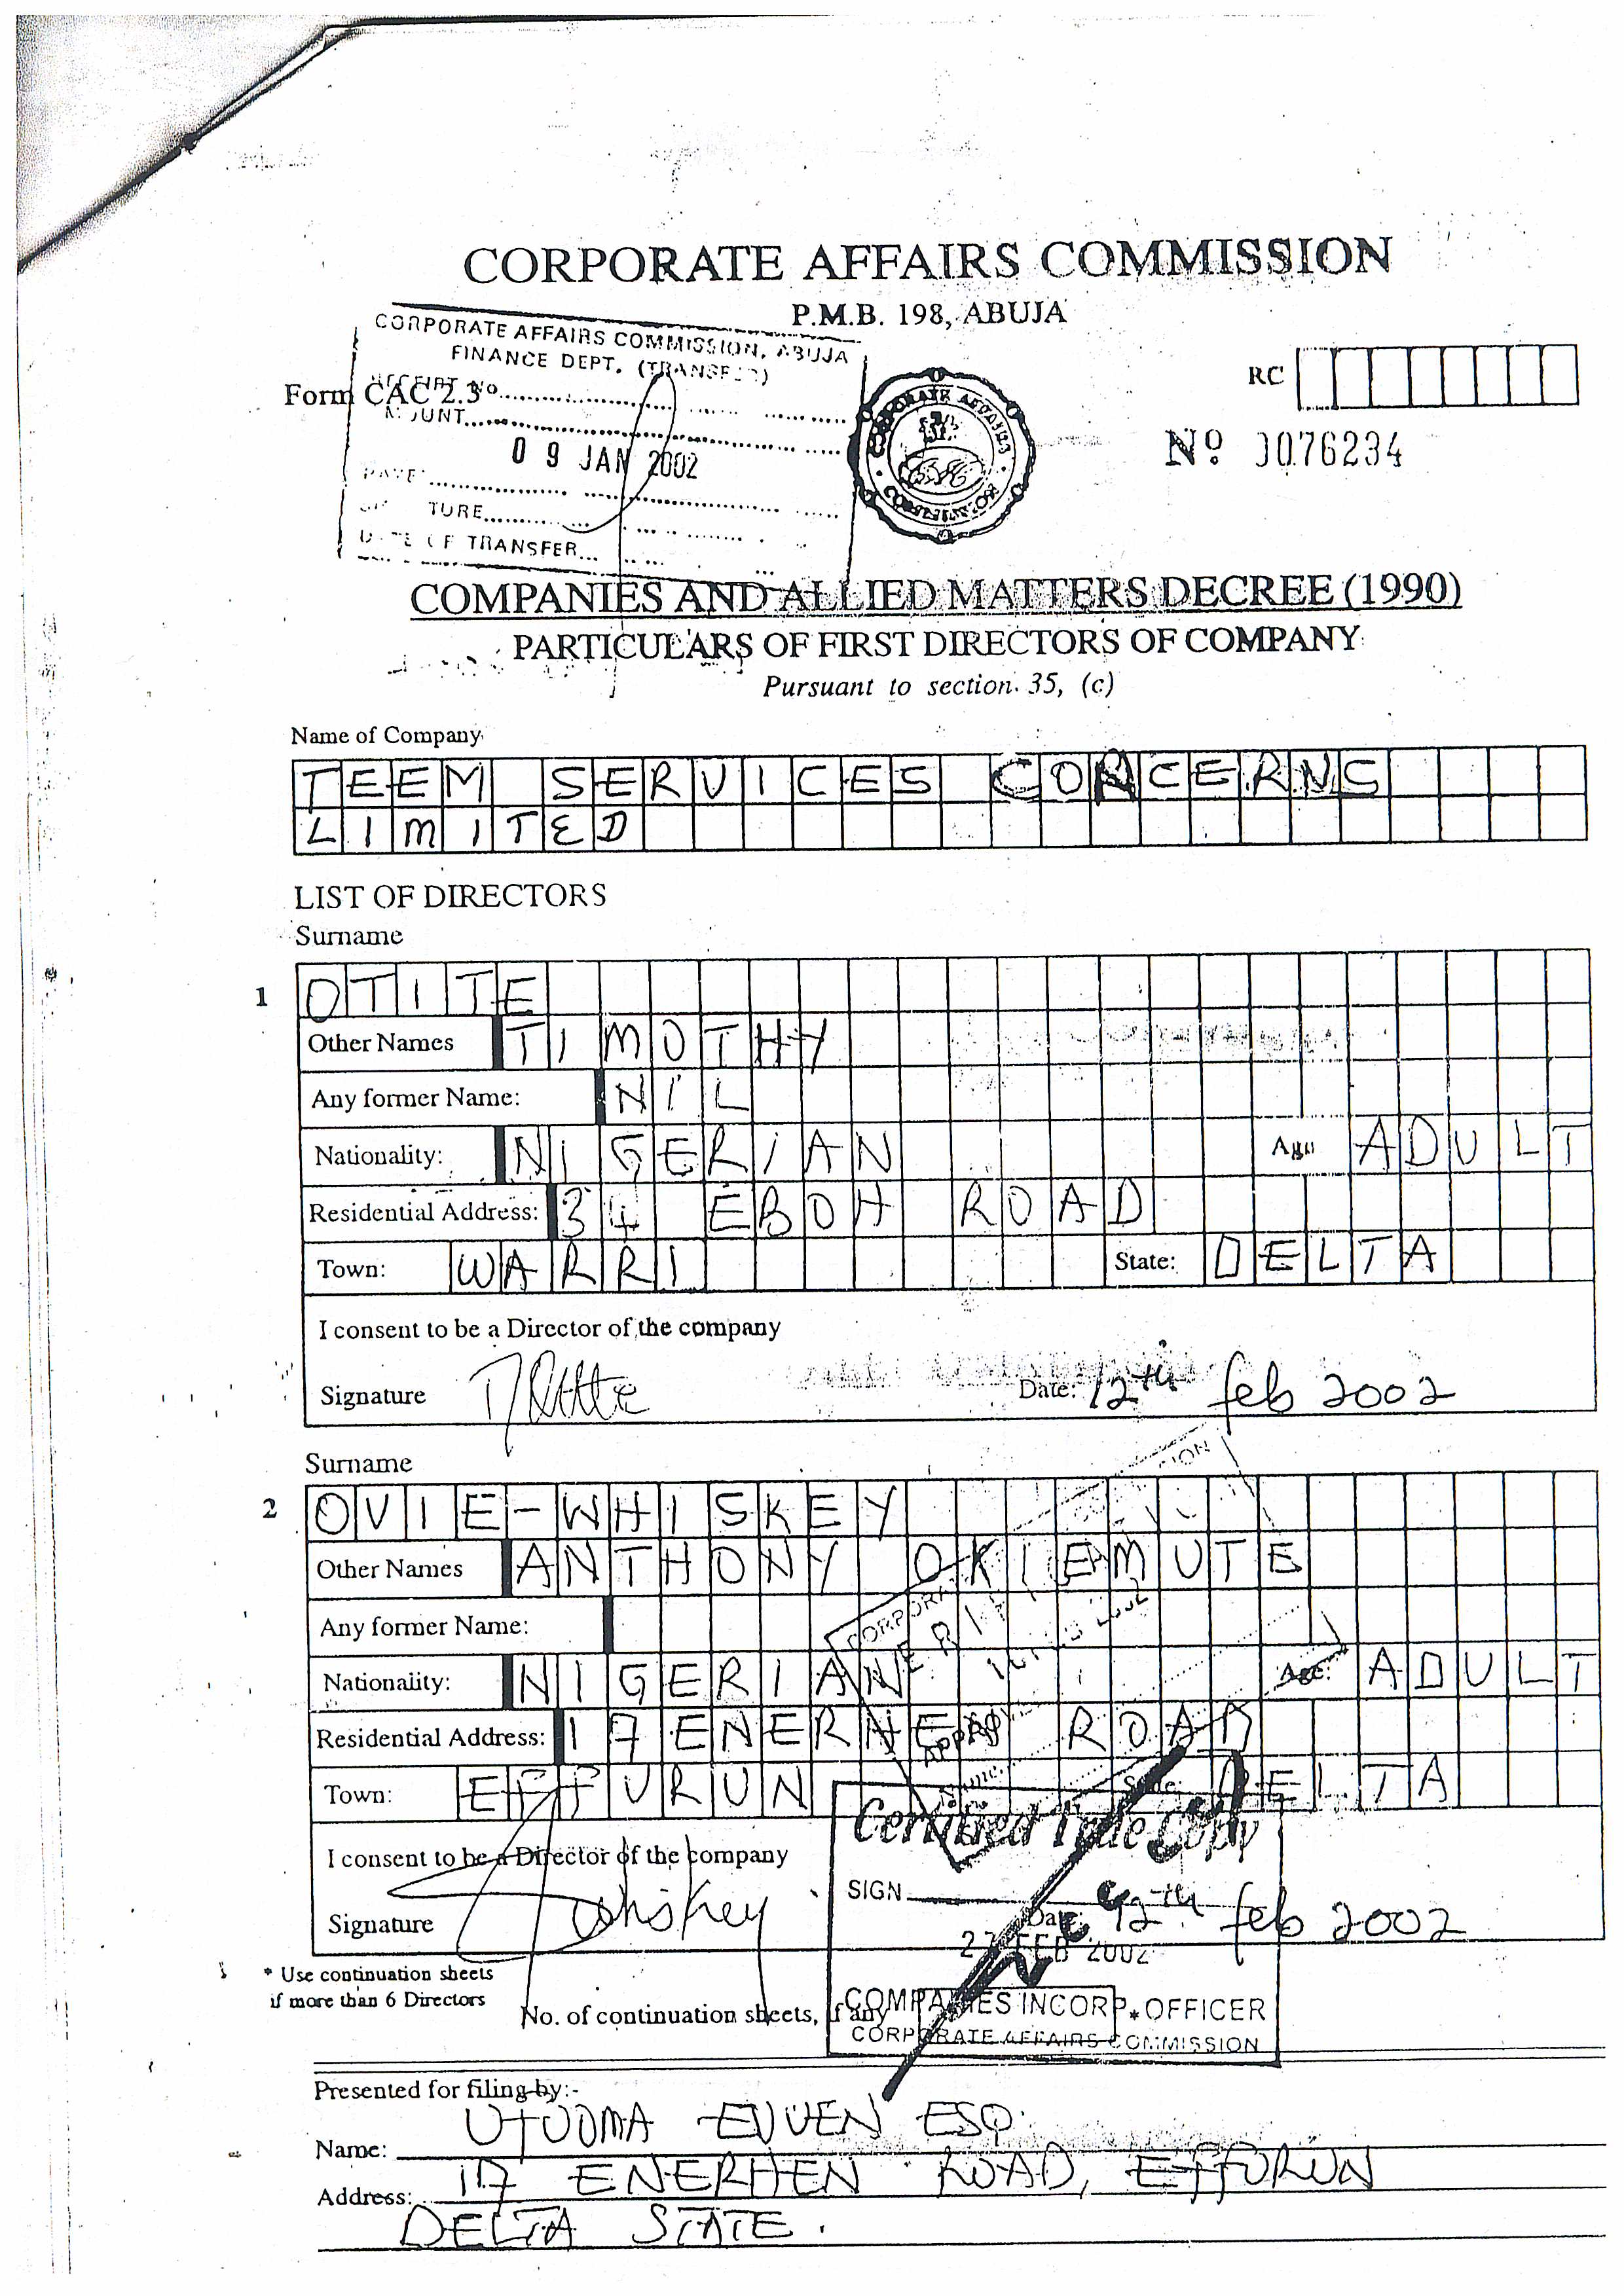 CORPORATE AFFAIRS COMMISSION
P.M.B. 198, ABUJA
CORPORATE AFFAIRS COMMISSION, ABUJA
FINANCE DEPT. (TRANSFER)
RECEIPT No
Form CAC 2.3
AMOUNT
09 JAN 2002
DATE
TURE
DATE OF TRANSFER
CORPORATE AFFAIRS COMMISSION
RC
No 0076234
COMPANIES AND ALLIED MATTERS DECREE (1990)
PARTICULARS OF FIRST DIRECTORS OF COMPANY
Pursuant to section 35, (c)
Name of Company
TEEM SERVICES CONCERNS
LIMITED
LIST OF DIRECTORS
Surname
1 OTITE
Other Names TIMOTHY
Any former Name: NIL
Nationality: NIGERIAN Age: ADULT
Residential Address: 34 EBOH ROAD
Town: WARRI State: DELTA
I consent to be a Director of the company
Signature Date: 12th feb 2002
Surname
2 OVIE-WHISKEY
Other Names ANTHONY OKIEMUTE
Any former Name:
Nationality: NIGERIAN Age: ADULT
Residential Address: 17 ENERHEN ROAD
Town: EFFURUN State: DELTA
I consent to be a Director of the company
Signature Whiskey Date: 12th feb 2002
Certified True Copy
SIGN
27 FEB 2002
COMPANIES INCORP. OFFICER
CORPORATE AFFAIRS COMMISSION
* Use continuation sheets
if more than 6 Directors
No. of continuation sheets, if any
Presented for filing by:-
Name: ESQ.
Address: 117 ENERHEN ROAD, EFFURUN
DELTA STATE.